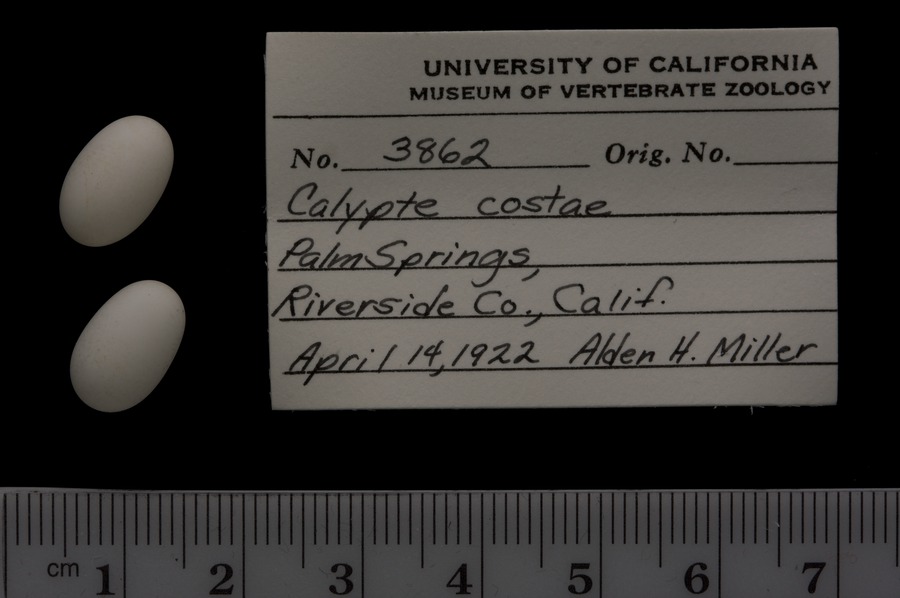 UNIVERSITY OF CALIFORNIA
MUSEUM OF VERTEBRATE ZOOLOGY
No. 3862 Orig. No.
Calypte costae
Palm Springs,
Riverside Co., Calif.
April 14, 1922 Alden H. Miller
cm 1 2 3 4 5 6 7